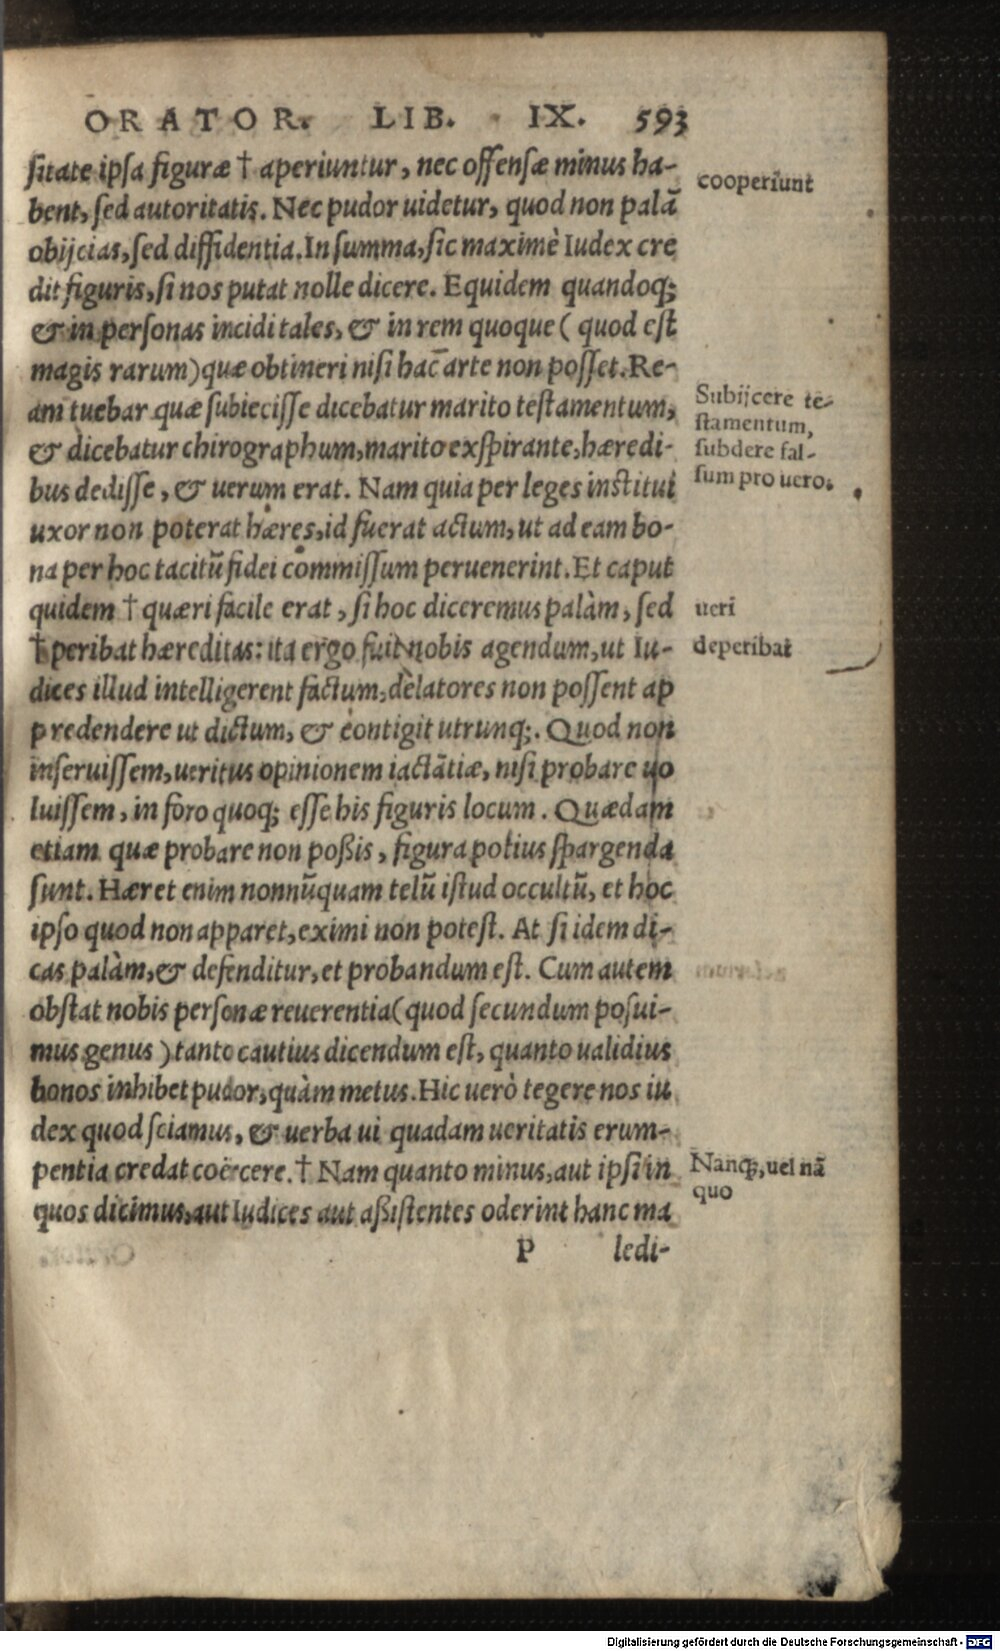 ORATOR. LIB. IX. 593
sitate ipsa figuræ † aperiuntur, nec offensæ minus ha-
bent, sed autoritatis. Nec pudor uidetur, quod non palã
obijcias, sed diffidentia. In summa, sic maximè Iudex cre
dit figuris, si nos putat nolle dicere. Equidem quandoq;
& in personas incidi tales, & in rem quoque (quod est
magis rarum) quæ obtineri nisi hac arte non posset. Re-
am tuebar quæ subiecisse dicebatur marito testamentum,
& dicebatur chirographum, marito exspirante, hæredi-
bus dedisse, & uerum erat. Nam quia per leges institui
uxor non poterat hæres, id fuerat actum, ut ad eam bo-
na per hoc tacitũ fidei commissum peruenerint. Et caput
quidem † quæri facile erat, si hoc diceremus palàm, sed
† peribat hæreditas: ita ergo fuit nobis agendum, ut Iu-
dices illud intelligerent factum, delatores non possent ap
predendere ut dictum, & contigit utrunq;. Quod non
inseruissem, ueritus opinionem iactãtiæ, nisi probare uo
luissem, in foro quoq; esse his figuris locum. Quædam
etiam quæ probare non poßis, figura potius spargenda
sunt. Hæret enim nonnũquam telũ istud occultũ, et hoc
ipso quod non apparet, eximi non potest. At si idem di-
cas palàm, & defenditur, et probandum est. Cum autem
obstat nobis personæ reuerentia (quod secundum posui-
mus genus) tanto cautius dicendum est, quanto ualidius
bonos inhibet pudor, quàm metus. Hic uerò tegere nos iu
dex quod sciamus, & uerba ui quadam ueritatis erum-
pentia credat coërcere. † Nam quanto minus, aut ipsi in
quos dicimus, aut Iudices aut aßistentes oderint hanc ma
P ledi-
cooperiunt
Subijcere te-
stamentum,
subdere fal-
sum pro uero.
ueri
deperibat
Nanq;, uel nã
quo
Digitalisierung gefördert durch die Deutsche Forschungsgemeinschaft - DFG